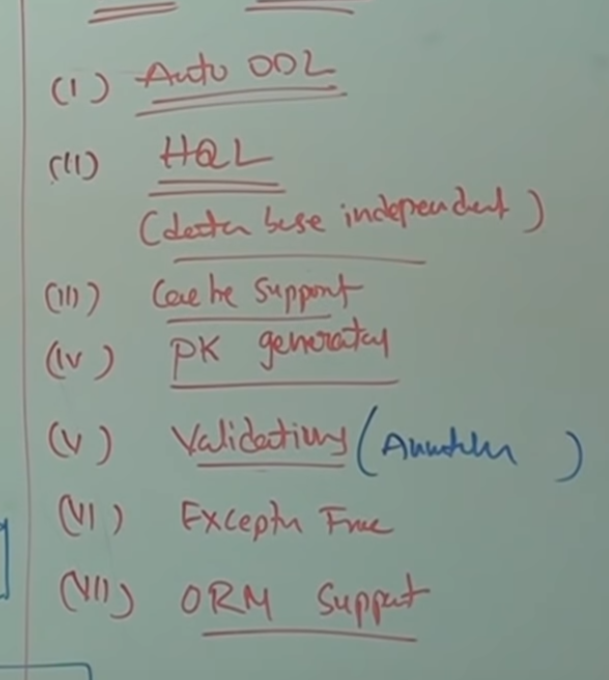 (I) Auto DDL
(II) HQL
(data base independent)
(III) Cache Support
(IV) PK generator
(V) Validations (Annotation)
(VI) Exceptn Free
(VII) ORM Support